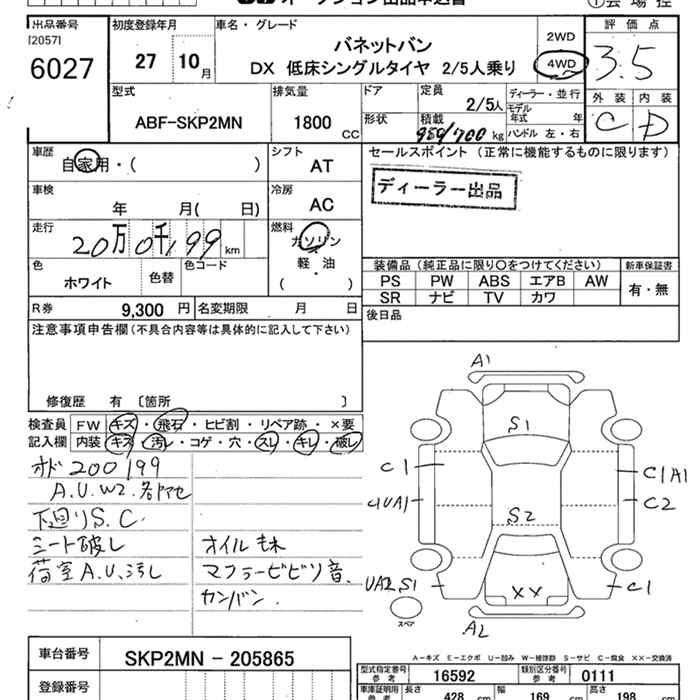 オークション出品申込書
①会場控
出品番号
[2057]
6027
初度登録年月
27 10月
車名・グレード
バネットバン
DX 低床シングルタイヤ 2/5人乗り
2WD
4WD
評価点
3.5
外装 内装
C D
型式
ABF-SKP2MN
排気量
1800 cc
ドア
形状
定員
2/5人
積載
950/700 kg
ディーラー・並行
モデル年式 年
ハンドル 左・右
車歴
自家用・( )
シフト
AT
セールスポイント(正常に機能するものに限ります)
ディーラー出品
車検
年 月( 日)
冷房
AC
走行
20万0千199 km
燃料
ガソリン
軽・油
( )
色
ホワイト
色替
色コード
装備品(純正品に限り○をつけてください)
PS PW ABS エアB AW
SR ナビ TV カワ
新車保証書
有・無
R券 9,300円
名変期限 月 日
後日品
注意事項申告欄(不具合内容等は具体的に記入して下さい)
修復歴 有〔箇所 〕
検査員 FW キズ・飛石・ヒビ割・リペア跡・×要
記入欄 内装 キズ・汚レ・コゲ・穴・スレ・キレ・破レ
オド200199
A.U.W2.各アセ
下廻りS.C.
シート破レ
荷室A.U.汚レ
オイルモレ
マフラービビリ音.
カンバン.
A1
S1
C1
C1A1
C1UA1
C2
S2
UA2.S1
XX
C1
スペア
A2
A−キズ E−エクボ U−凹み W−補修跡 S−サビ C−腐食 XX−交換済
車台番号
SKP2MN - 205865
登録番号
型式指定番号 参考
16592
類別区分番号 参考
0111
車庫証明用 参考
長さ 428 cm
幅 169 cm
高さ 198 cm